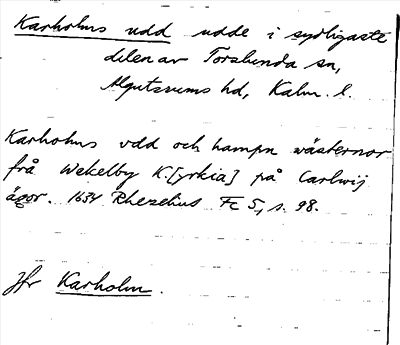 Karholms udd udde i sydligaste
delen av Torslunda sn,
Algutsrums hd, Kalm. l.
Karholms vdd och hampn wästernor
frå Wekelby K.[yrkia] på Carlwij
ägor. 1634 Rhezelius Fc 5, s. 98.
Jfr Karholm.